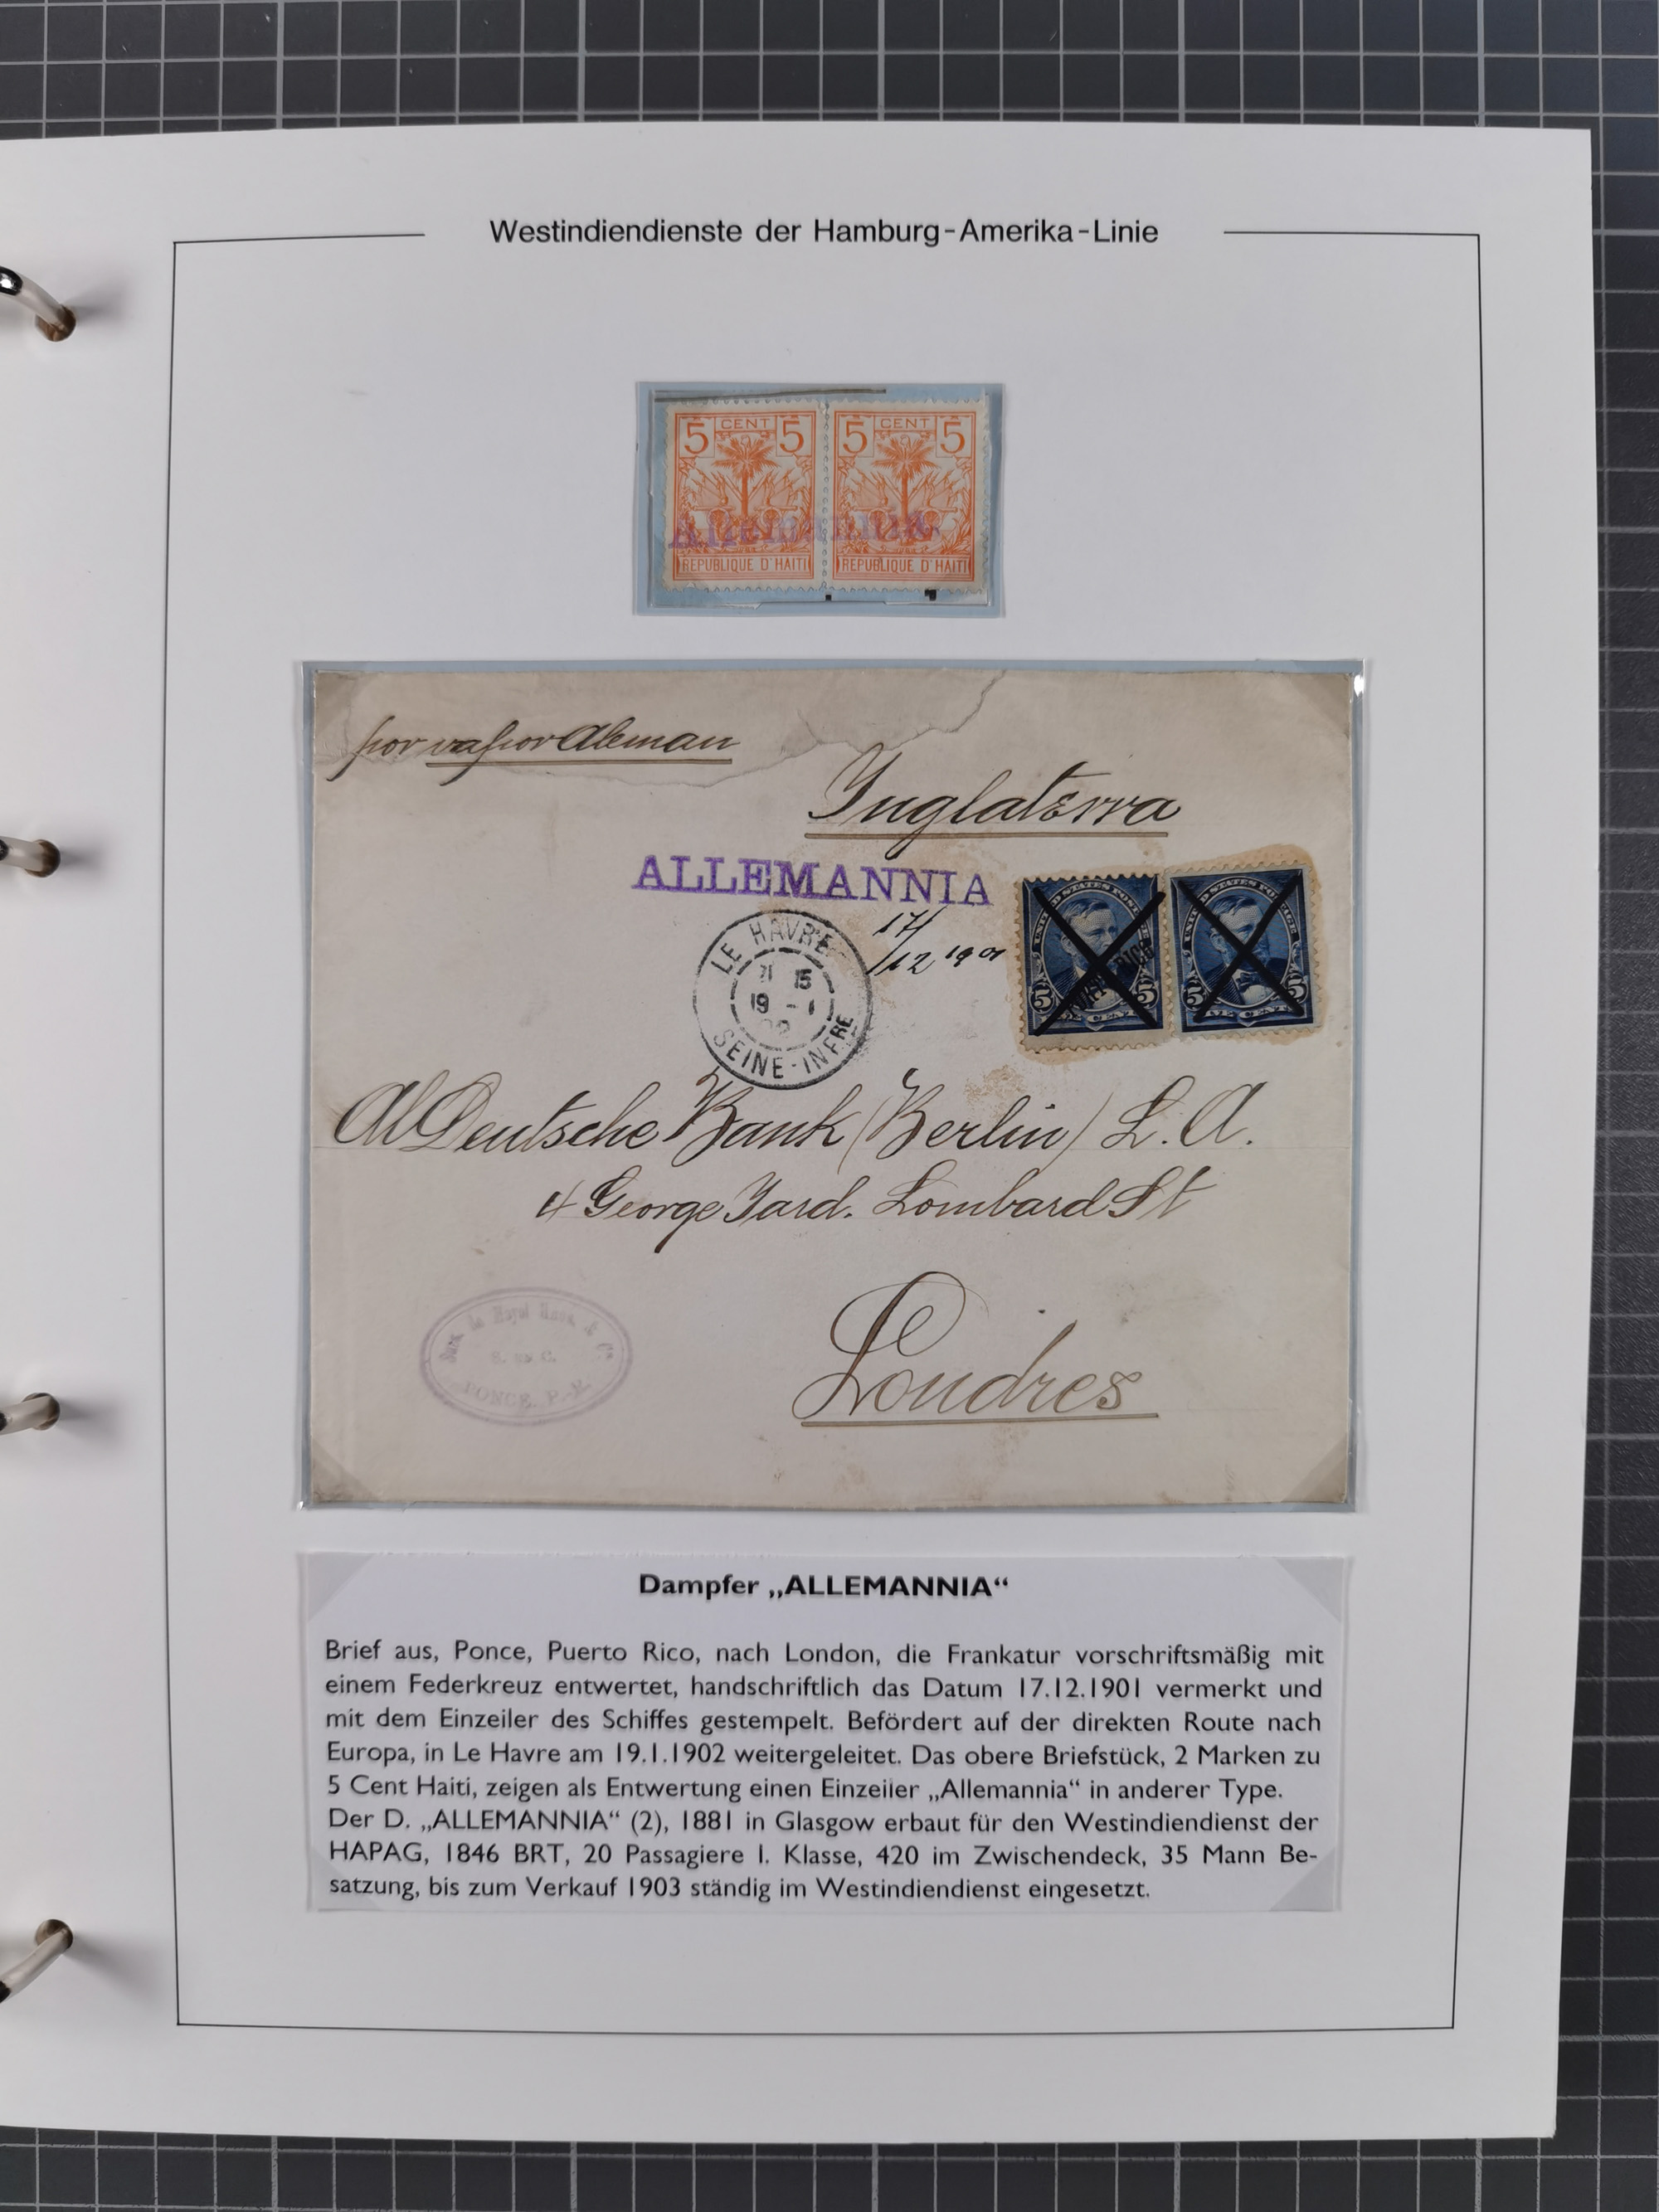 Westindiendienste der Hamburg-Amerika-Linie
5 CENT 5 5 CENT 5
Allemannia
REPUBLIQUE D'HAITI REPUBLIQUE D'HAITI
por vapor Aleman
Inglaterra
ALLEMANNIA
17/
/12 1901
LE HAVRE
15
19 - 1
02
SEINE-INFRE
UNITED STATES POSTAGE
5 5
UNITED STATES POSTAGE
5 5
Al Deutsche Bank (Berlin) L. A.
4 George Yard. Lombard St
Londres
PONCE, P.R.
Dampfer „ALLEMANNIA“
Brief aus, Ponce, Puerto Rico, nach London, die Frankatur vorschriftsmäßig mit
einem Federkreuz entwertet, handschriftlich das Datum 17.12.1901 vermerkt und
mit dem Einzeiler des Schiffes gestempelt. Befördert auf der direkten Route nach
Europa, in Le Havre am 19.1.1902 weitergeleitet. Das obere Briefstück, 2 Marken zu
5 Cent Haiti, zeigen als Entwertung einen Einzeiler „Allemannia“ in anderer Type.
Der D. „ALLEMANNIA“ (2), 1881 in Glasgow erbaut für den Westindiendienst der
HAPAG, 1846 BRT, 20 Passagiere I. Klasse, 420 im Zwischendeck, 35 Mann Be-
satzung, bis zum Verkauf 1903 ständig im Westindiendienst eingesetzt.